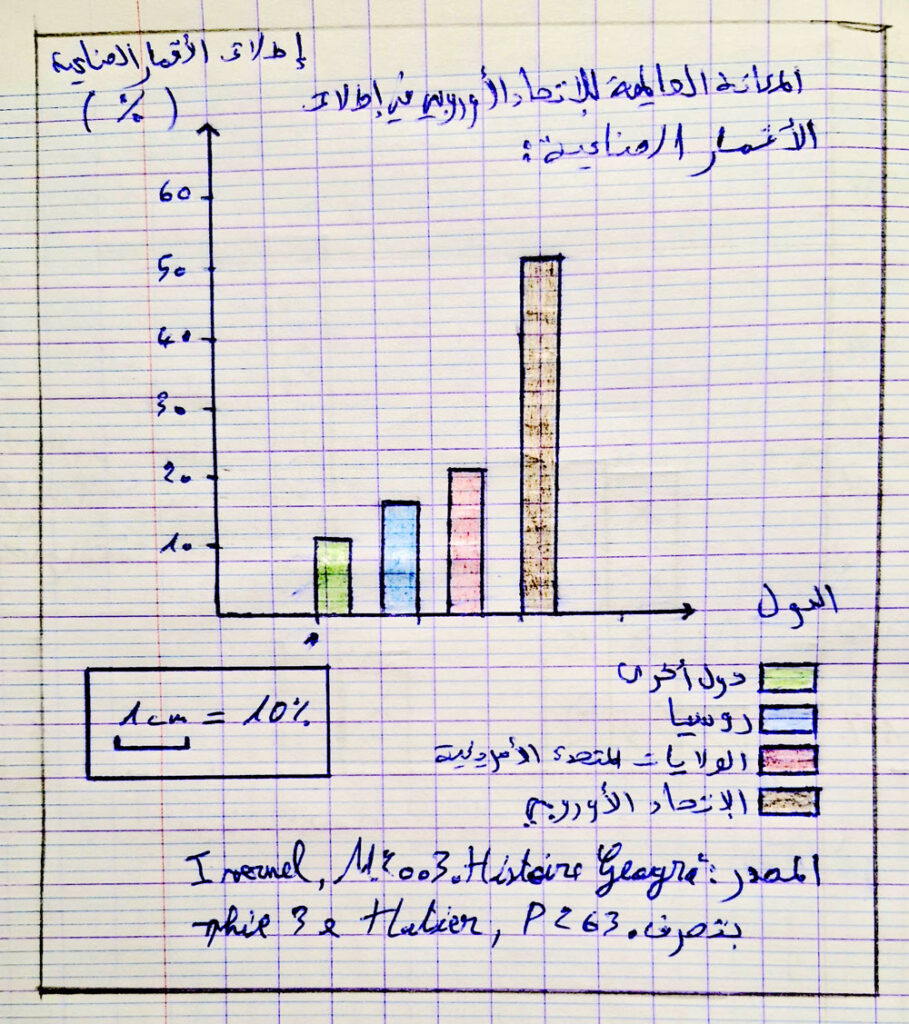 إطلاق الأقمار الصناعية
(%)
المكانة العالمية للإتحاد الأوروبي في إطلاق
الأقمار الصناعية:
60
50
40
30
20
10
الدول
دول أخرى
روسيا
الولايات المتحدة الأمريكية
الإتحاد الأوروبي
1cm = 10%
المصدر: Ivernel, M2003. Histoire Géogra
phie 3e Hatier, P263. بتصرف